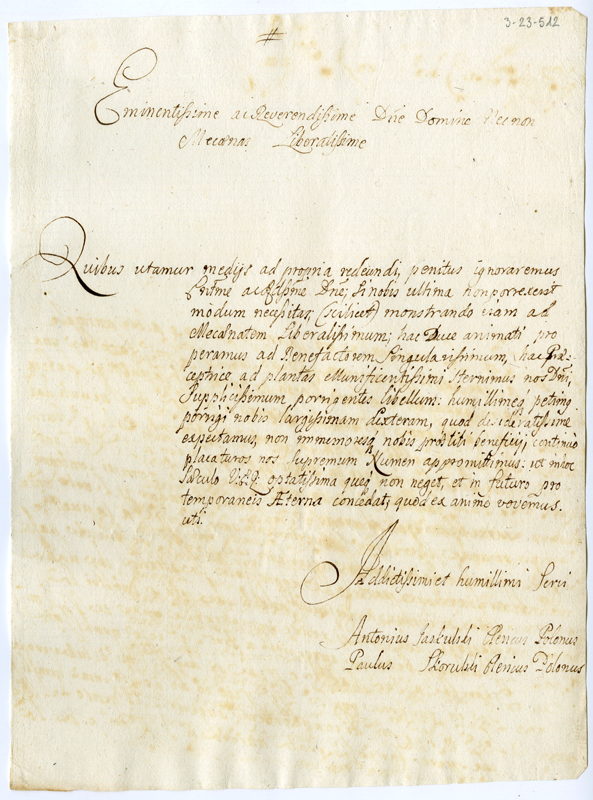 3-23-512
#
Eminentissime ac Reverendissime Dñe Domine Nec non
Mecænas Liberalissime
Quibus utamur medijs ad propria redeundi, penitus ignoraremus
Emme ac Rdissme Dñe, si nobis ultima non porrexerit
modum necessitas, (scilicet) monstrando viam ad
Mecænatem Liberalissimum; hac Duce animati pro
peramus ad Benefactorem singularissimum, hac Præ-
ceptrice ad plantas Munificentissimi sternimus nos Dñi,
supplicissimum porrigentes libellum: humillimeq petimq
porrigi nobis largissimam dexteram, quod desideratissime
expectamus, non immemoresq nobis præstiti beneficij, continuo
placaturos nos supremum Numen appromittimus: ut in hoc
sæculo optatissima quæq non neget, et in futuro pro
temporaneis Æterna concedat, quod ex animo vovemus.
uti.
Addictissimi et humillimi Servi
Antonius Jaskulski Clericus Polonus
Paulus Skorulski Clericus Polonus